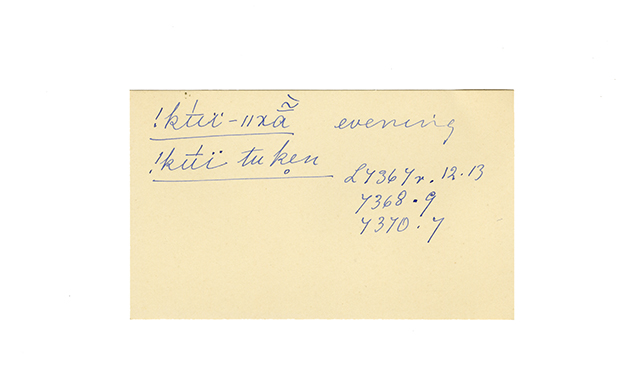 !kúï-ııxã̄ evening
!kúï tu ken̥
L7367r. 12.13
7368.9
7370.7